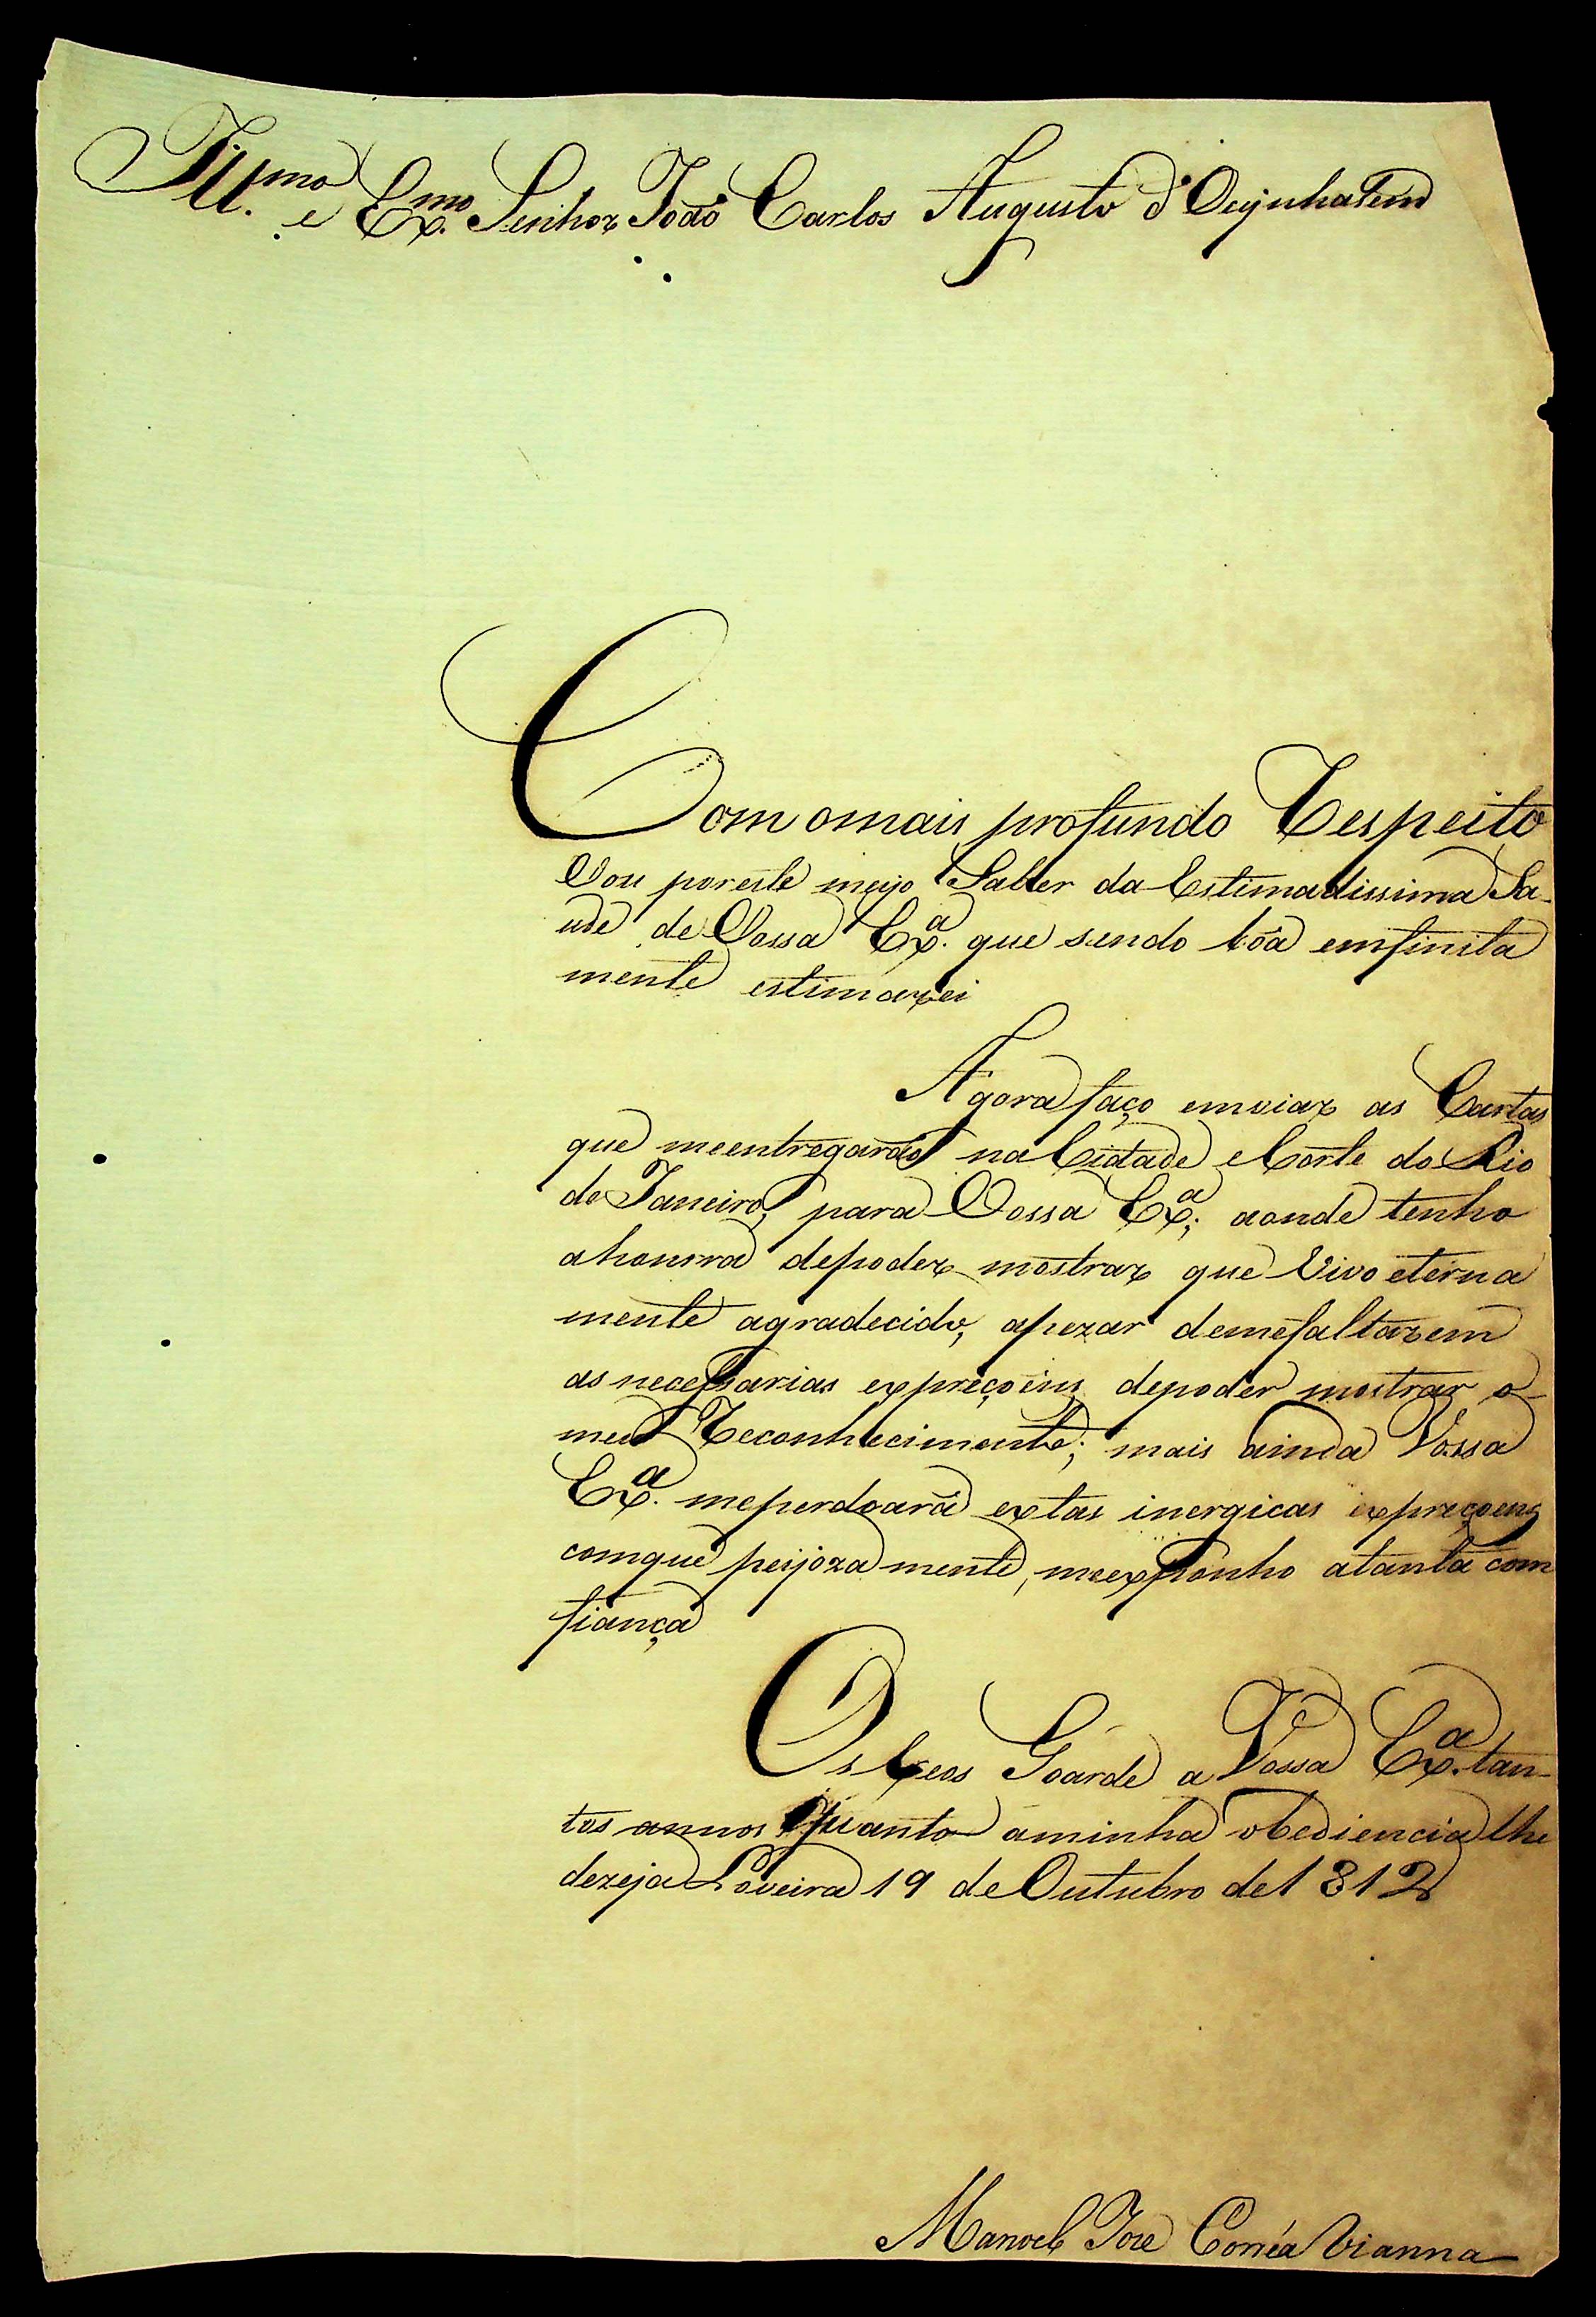 Ill.mo e Ex.mo Senhor João Carlos Augusto d'Oeynhasem
Com omais profundo Respeito
Vou poreste meyo Saber da Estimadissima Sa-
ude de Vossa Ex.a que sendo bôa emfinita
mente estimarei
Agora faço emviar as Cartas
que meentregarão na Cidade eCorte do Rio
deJaneiro, para Vossa Ex.a; aonde tenho
ahonrra depoder mostrar que Vivo eterna
mente agradecido, apezar demefaltarem
as necessarias expreçoins depoder mostrar o
meu Reconhecimento; mais ainda Vossa
Ex.a meperdoará extas inergicas expreçoens
comque pejoza mente, meexponho atanta com
fiança
Os Ceos Goarde a Vossa Ex.a tan-
tos annos Quanto aminha obediencia lhe
dezeja Loveira 19 de Outubro de 1812
Manoel Joze Corrêa Vianna